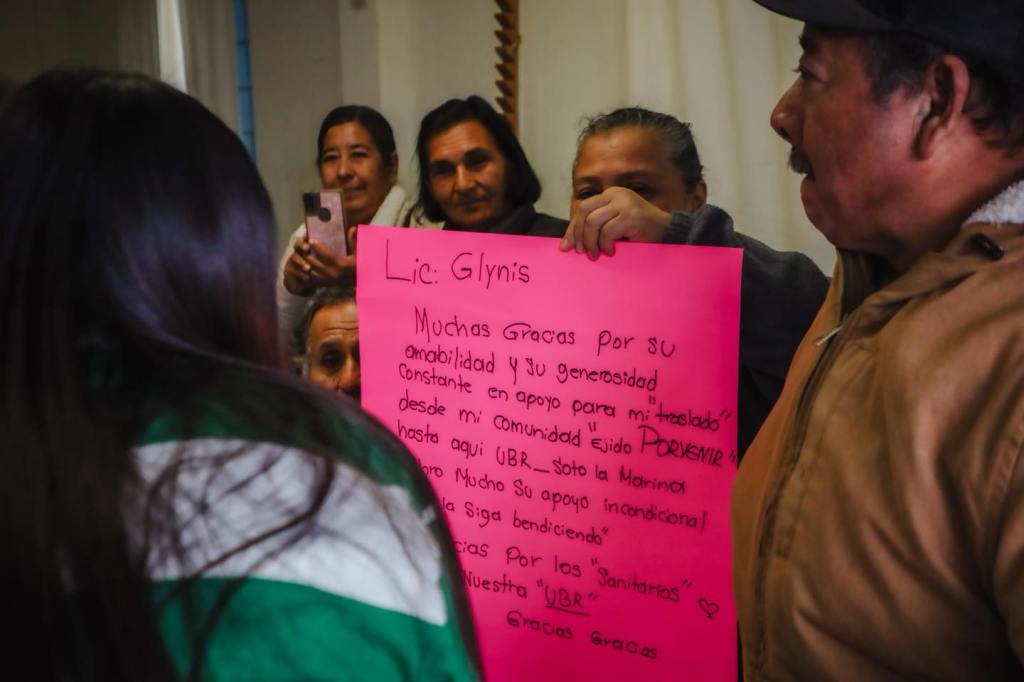 Lic: Glynis
Muchas Gracias por su
amabilidad y su generosidad
constante en apoyo para mi "traslado"
desde mi comunidad "Ejido PORVENIR"
hasta aqui UBR_Soto la Marina
Mucho Su apoyo incondicional
la Siga bendiciendo"
Por los "Sanitarios" ♡
Nuestra "UBR"
Gracias Gracias